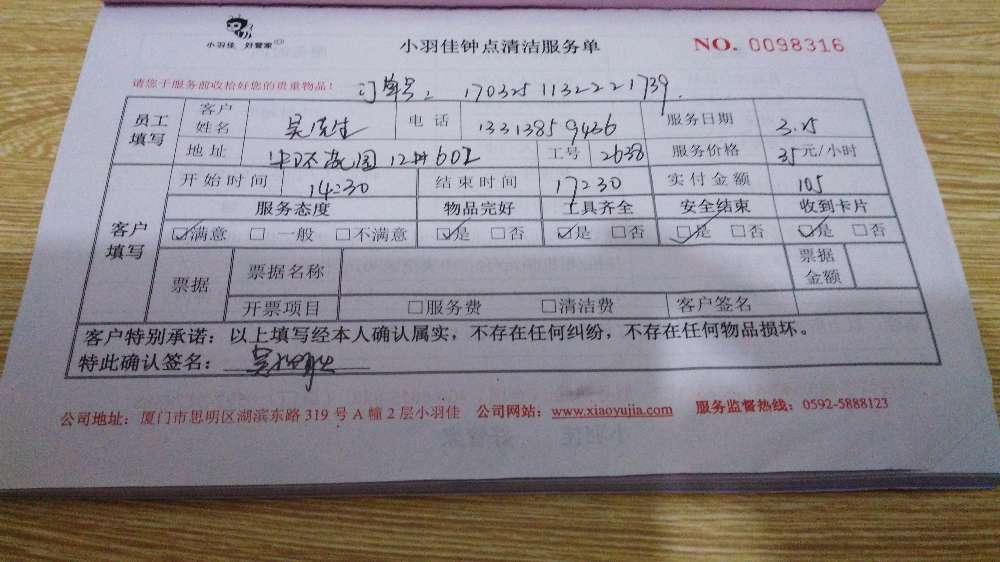 小羽佳 好管家
小羽佳钟点清洁服务单 NO. 0098316
请您于服务前收拾好您的贵重物品！ 订单号： 17032511322221739
员工填写 客户姓名 吴 生 电话 13313859436 服务日期 3.25
地址 12# 602 工号 2638 服务价格 35元/小时
客户填写 开始时间 14:30 结束时间 17:30 实付金额 105
服务态度 物品完好 工具齐全 安全结束 收到卡片
☑满意 □一般 □不满意 ☑是 □否 ☑是 □否 ☑是 □否 ☑是 □否
票据 票据名称 票据金额
开票项目 □服务费 □清洁费 客户签名
客户特别承诺：以上填写经本人确认属实，不存在任何纠纷，不存在任何物品损坏。
特此确认签名：
公司地址：厦门市思明区湖滨东路 319 号 A 幢 2 层小羽佳 公司网站：www.xiaoyujia.com 服务监督热线：0592-5888123